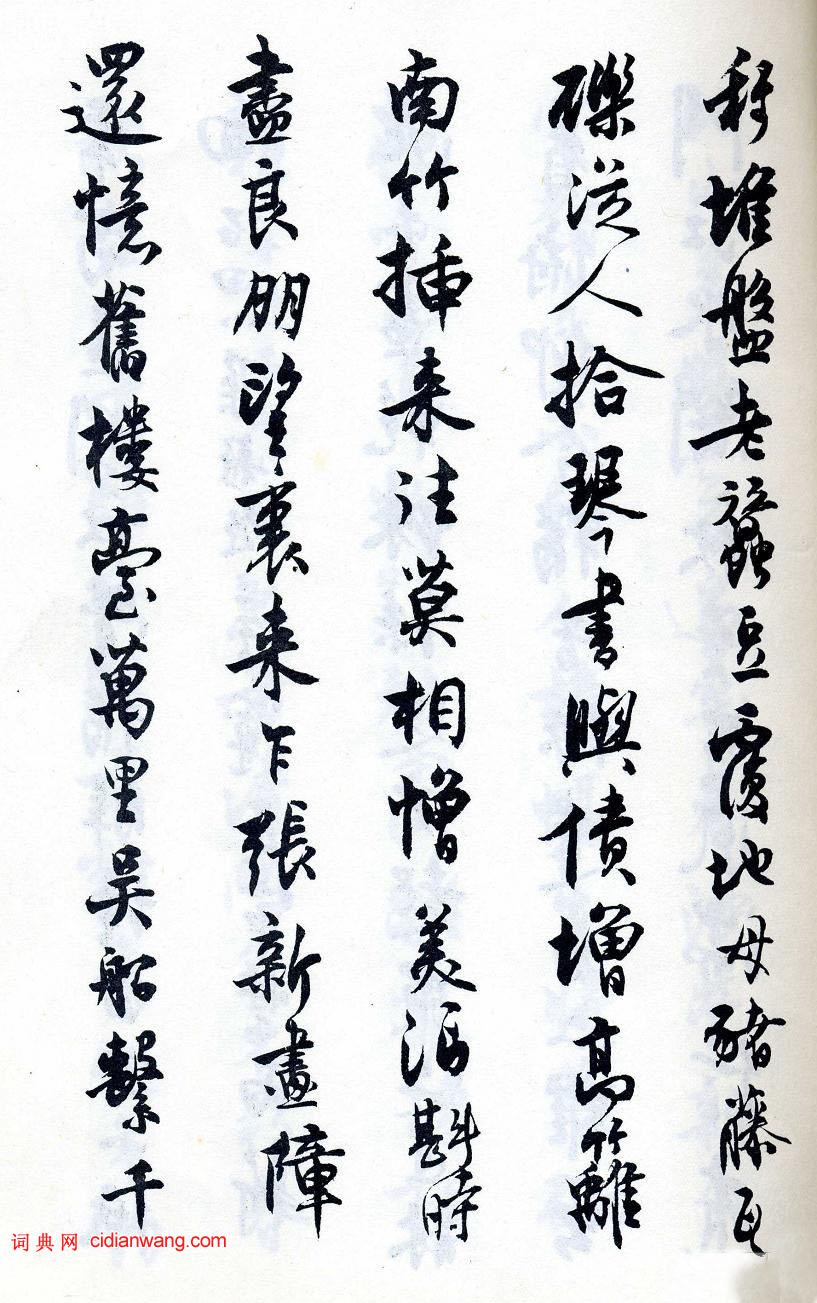 堆盤老蠶豆覆地母豬藤瓦
礫從人拾琴書與債增高籬
南竹插来往莫相憎美酒斟時
盡良朋望裏来乍張新畫障
還憶舊樓臺萬里吴船繫千
词典网 cidianwang.com